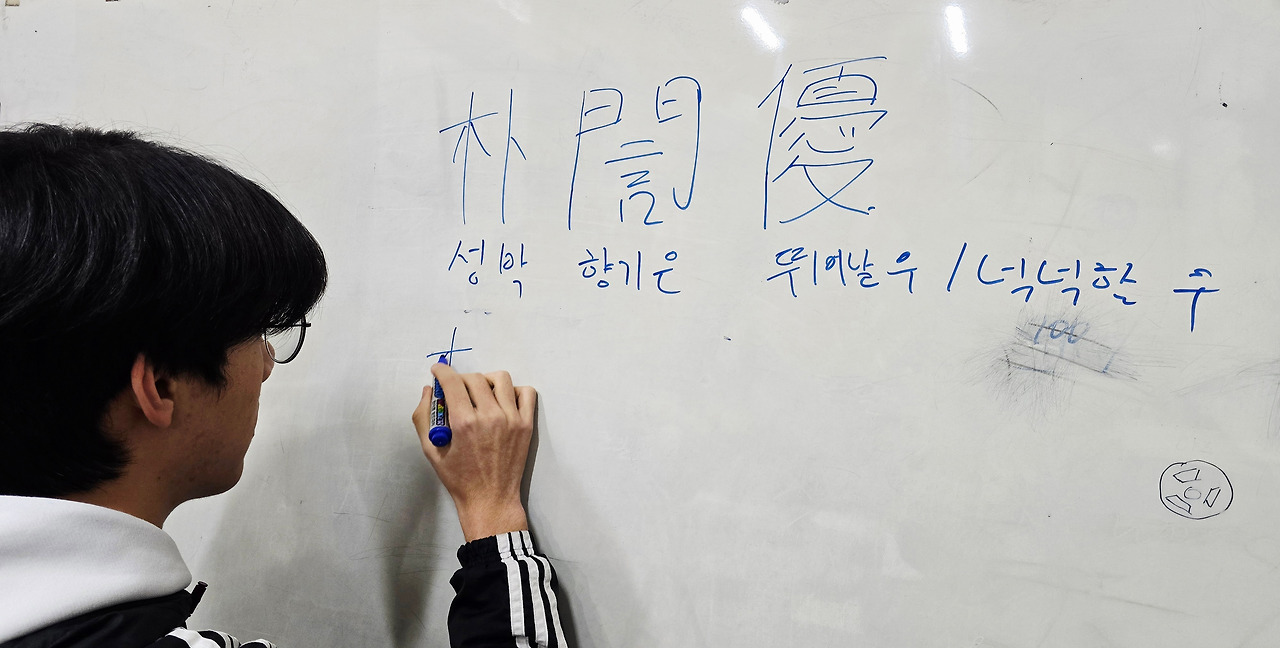 朴 誾 優
성 박 향기 은 뛰어날 우 / 넉넉할 우
100